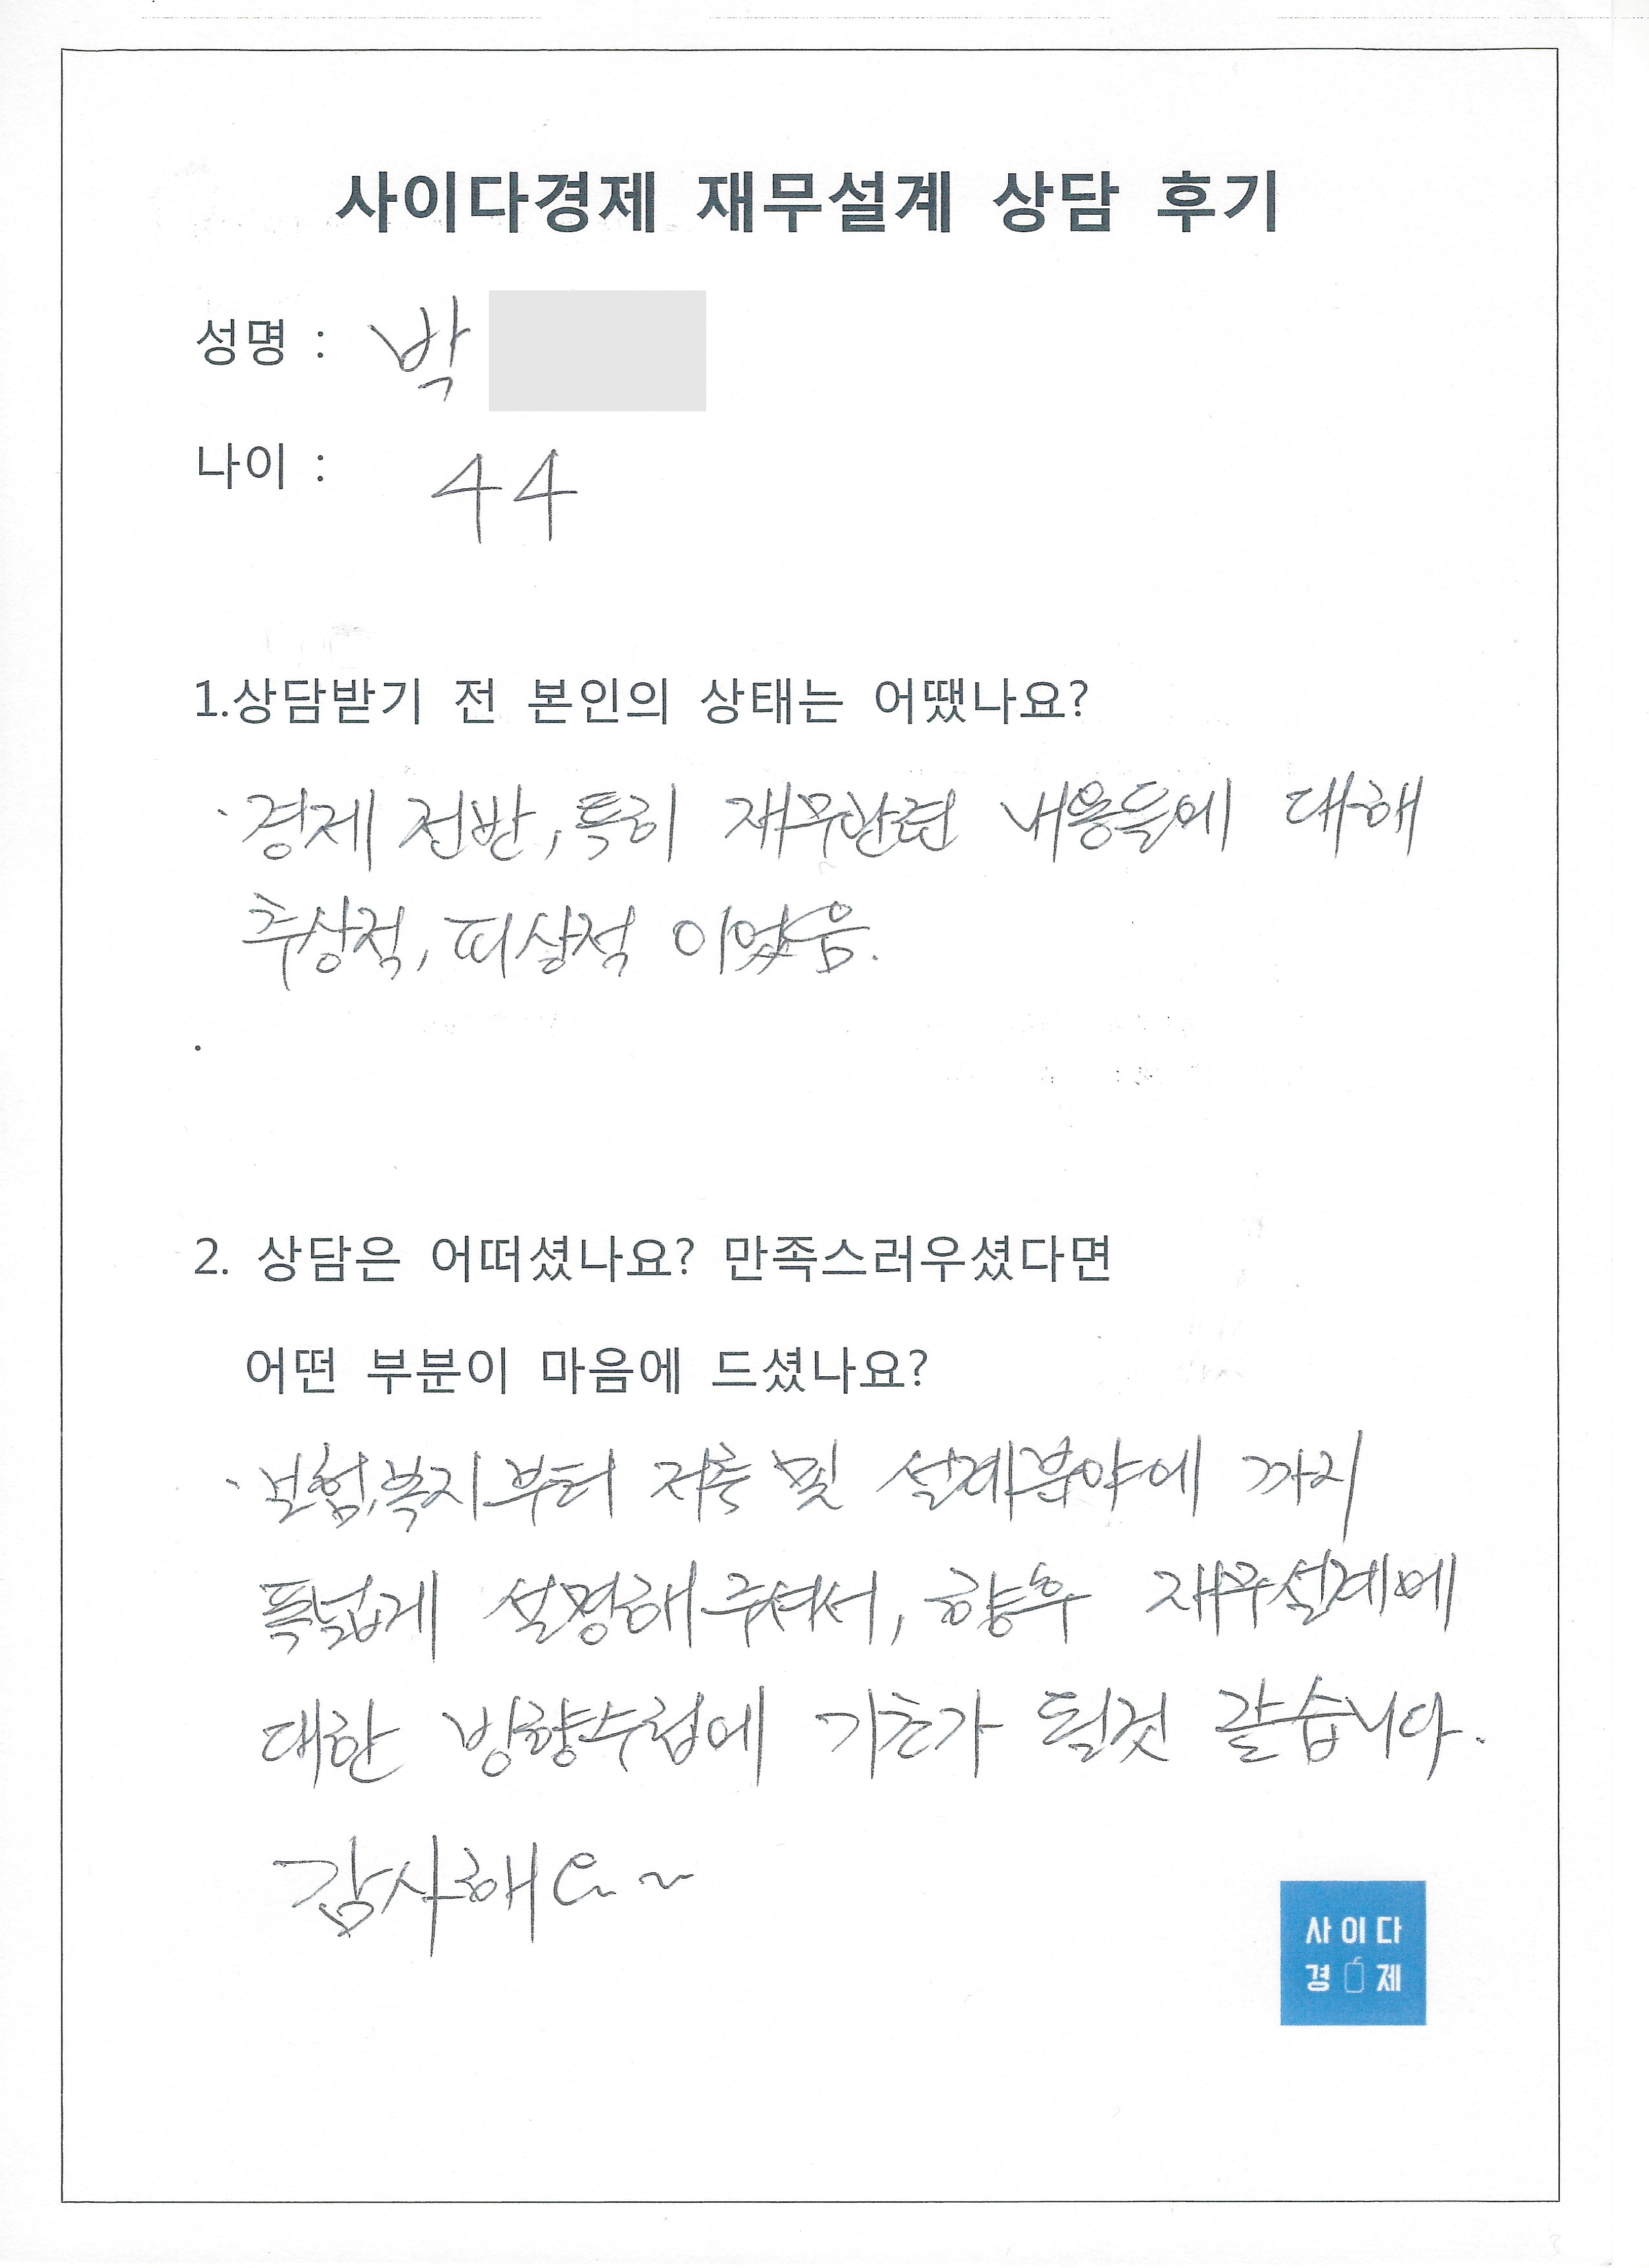 사이다경제 재무설계 상담 후기
성명 : 박
나이 : 44
1.상담받기 전 본인의 상태는 어땠나요?
· 경제 전반, 특히 재무관련 내용들에 대해
추상적, 피상적 이었음.
.
2. 상담은 어떠셨나요? 만족스러우셨다면
어떤 부분이 마음에 드셨나요?
· 보험,복지부터 저축 및 설계분야에 까지
폭넓게 설명해 주셔서, 향후 재무설계에
대한 방향수립에 기초가 될것 같습니다.
감사해요~
사이다
경제